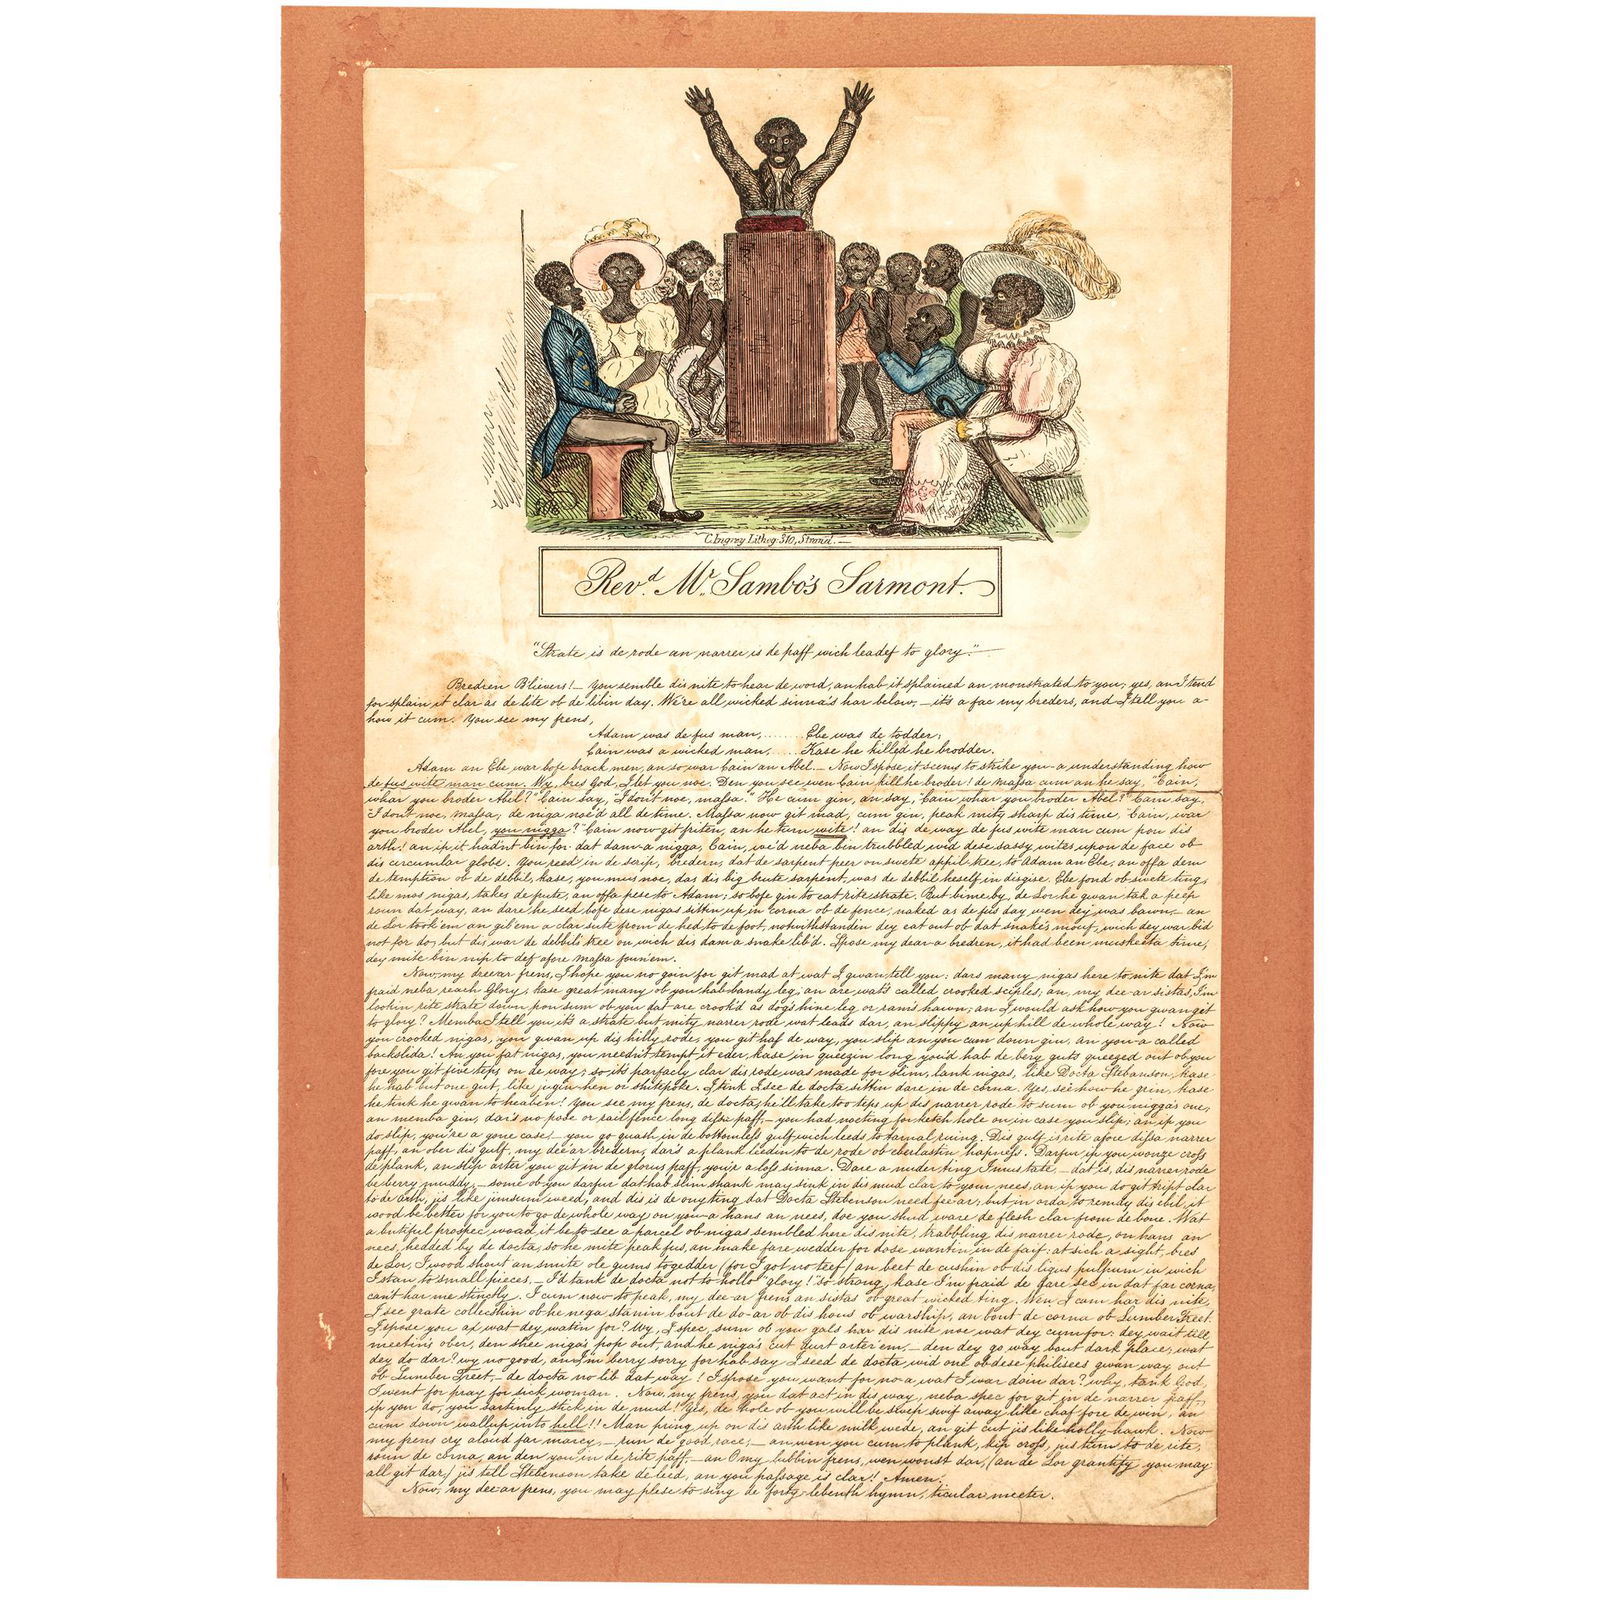 C. Ingrey Lithog. 310, Strand.—
Revd. Mr. Sambo's Sarmont.
"Strate is de rode an narrer is de paff wich leadef to glory."
Bredren Blievers!— You semble dis nite to hear de word, an hab it splained an monstrated to you; yes, an I tend
for splain it clar as de lite ob de libin day. We're all wicked sinna's har below,— it's a fac my breders, and I tell you a-
how it cum. You see my frens,
Adam was de fus man,........Ebe was de todder;
Cain was a wicked man,.....Kase he killed he brodder.
Adam an Ebe war bofe brack men, an so war Cain an Abel.— Now I spose it seems to strike you-a understanding how
de fus wite man cum. Wy, bres God, I let you noe. Den you see wen Cain kill he broder! de massa cum an he say, "Cain,
whar you broder Abel?" Cain say, "I don't noe, massa." He cum gin, an say, "Cain whar you broder Abel?" Cain say,
I dont noe, massa; de niga noe'd all de time. Massa now git mad, cum gin, peak mity sharp dis time. "Cain, war
you broder Abel, you nigga?" Cain now git friten, an he turn wite! an dis de way de fus wite man cum pon dis
arth! an if it hadn't bin for dat dam-a nigga, Cain, we'd neba bin trubbled wid dese sassy wites upon de face ob
dis circumlar globe. You reed in de scrip, bredern, dat de sarpent peer on swete appil-tree, to Adam an Ebe, an offa dem
de temption ob de debbil, kase, you mus noe, das dis big brute sarpent, was de debbil heself in disgise. Ebe fond ob swete ting,
like mos nigas, takes de frute, an offa pese to Adam; so bofe gin to eat rite strate. But bimeby, de Lor he gwan tak a peep
roun dat way, an dare he seed bofe dese nigas sittin up in corna ob de fence, naked as de fus day wen dey was bawn,— an
de Lor took'em an gib'em a clar sute from de hed to de foot, notwithstanden dey eat out ob dat snake's mouf, wich dey war bid
not for do; but dis war de debbil's tree on wich dis dam a snake lib'd. Spose my dear-a bredren, it had been muskeeta time,
dey mite bin nip to def afore massa foun'em.
Now, my dee-ar frens, I hope you no goin for git mad at wat I gwan tell you: dars many nigas here to nite dat I'm
fraid neba reach Glory; kase great many ob you hab bandy leg, an are wat's called crooked sciples; an, my dee-ar sistas, I'm
lookin rite strate down pon sum ob you dat are crook'd as dog's hine leg or ram's hawn; an I would ask how you gwan get
to glory? Memba I tell you it's a strate but mity narrer rode wat leads dar, an slippy an up hill de whole way! Now
you crooked nigas, you gwan up dis hilly rode, you git haf de way, you slip an you cum down gin, an you-a called
backslida! An you fat nigas, you needn't tempt it eder, kase in queezin long you'd hab de bery guts queezed out ob you
fore you git five teps on de way; so it's parfacly clar dis rode was made for slim, lank nigas, like Docta Stebanson, kase
he hab but one gut, like jigin-hen or shitepoke. I tink I see de docta sittin dare in de corna. Yes, see how he grin, kase
he tink he gwan to heaben! You see my frens, de docta, he'll take too teps up dis narrer rode to sum ob you nigga's one;
an memba gin, dar's no pose or rail fence long dissa paff,— you had nocting for ketch hole on in case you slip; an if you
do slip, you're a gone case!— you go quash in de bottomless gulf wich leeds to tarnal ruing. Dis gulf is rite afore dissa narrer
paff, an ober dis gulf, my dee-ar bredern, dar's a plank leedin to de rode ob eberlastin hapness. Darfur if you wonze cross
de plank, an slip arter you git in de glorus paff, you'r a loss sinna. Dare a nuder ting I mus tate,— dat is, dis narrer rode
be berry muddy,— some ob you darfur dat hab slim shank may sink in dis mud clar to your nees, an if you do git tript clar
to de arth, jis like jimsum weed, and dis is de ony ting dat Docta Stebenson need fee-ar; but in orda to remdy dis ebil, it
wood be better for you to go de whole way on you-a hans an nees, doe you shud ware de flesh clar from de bone. Wat
a butiful prospec woad it be to see a parcel ob nigas sembled here dis nite, trabbling dis narrer rode, on hans an
nees, hedded by de docta, so he mite peak fus, an make fare wedder for dose wantin in de faif: at sich a sight, bres
de Lor, I wood shout an smite ole gums togedder (for I got no teef) an beet de cushin ob dis ligus pulpum in wich
I stan, to small pieces,— I'd tank de docta not to hollo "glory!" so strong, kase I'm fraid de fare sec, in dat far corna,
can't har me stinctly. I cum now to peak, my dee-ar frens an sistas ob great wicked ting. Wen I cam har dis nite,
I see grate colleckshin ob he nega stanin bout de do-ar ob dis hous ob warship, an bout de corna ob Lumber Treet.
I spose you ax wat dey waitin for? Wy, I spec, sum ob you gals har dis nite noe wat dey cum for: dey wait till
meetin's ober, den shee niga's pop out, and he nigas cut durt arter'em,— den dey go way bout dark place; wat
dey do dar? wy no good, and I'm berry sorry for hab say I seed de docta wid one ob dese philisees gwan way out
ob Lumber Treet,— de docta no lib dat way! I spose you want for no-a wat I war doin dar? why, tank God,
I went for pray for sick woman. Now, my frens, you dat act in dis way, neba spec for git in de narrer paff,
if you do, you sartinly stick in de mud! Yes, de hole ob you will be sweep swif away like chaf fore de win, an
cum down wallup into hell!! Man pring up on dis arth like milk wede, an git cut jis like holly-hawk. Now
my frens cry aloud far marcy,— run de good race;— an wen you cum to plank, kep cross, jus turn to de rite,
roun de corna, an den you in de rite paff,— an O my lubbin frens, wen wonst dar, (an de Lor grantify you may
all git dar,) jis tell Stebenson take de leed, an you passage is clar! Amen.
Now, my dee-ar frens, you may plese to sing de forty-lebenth hymn, ticular meeter.